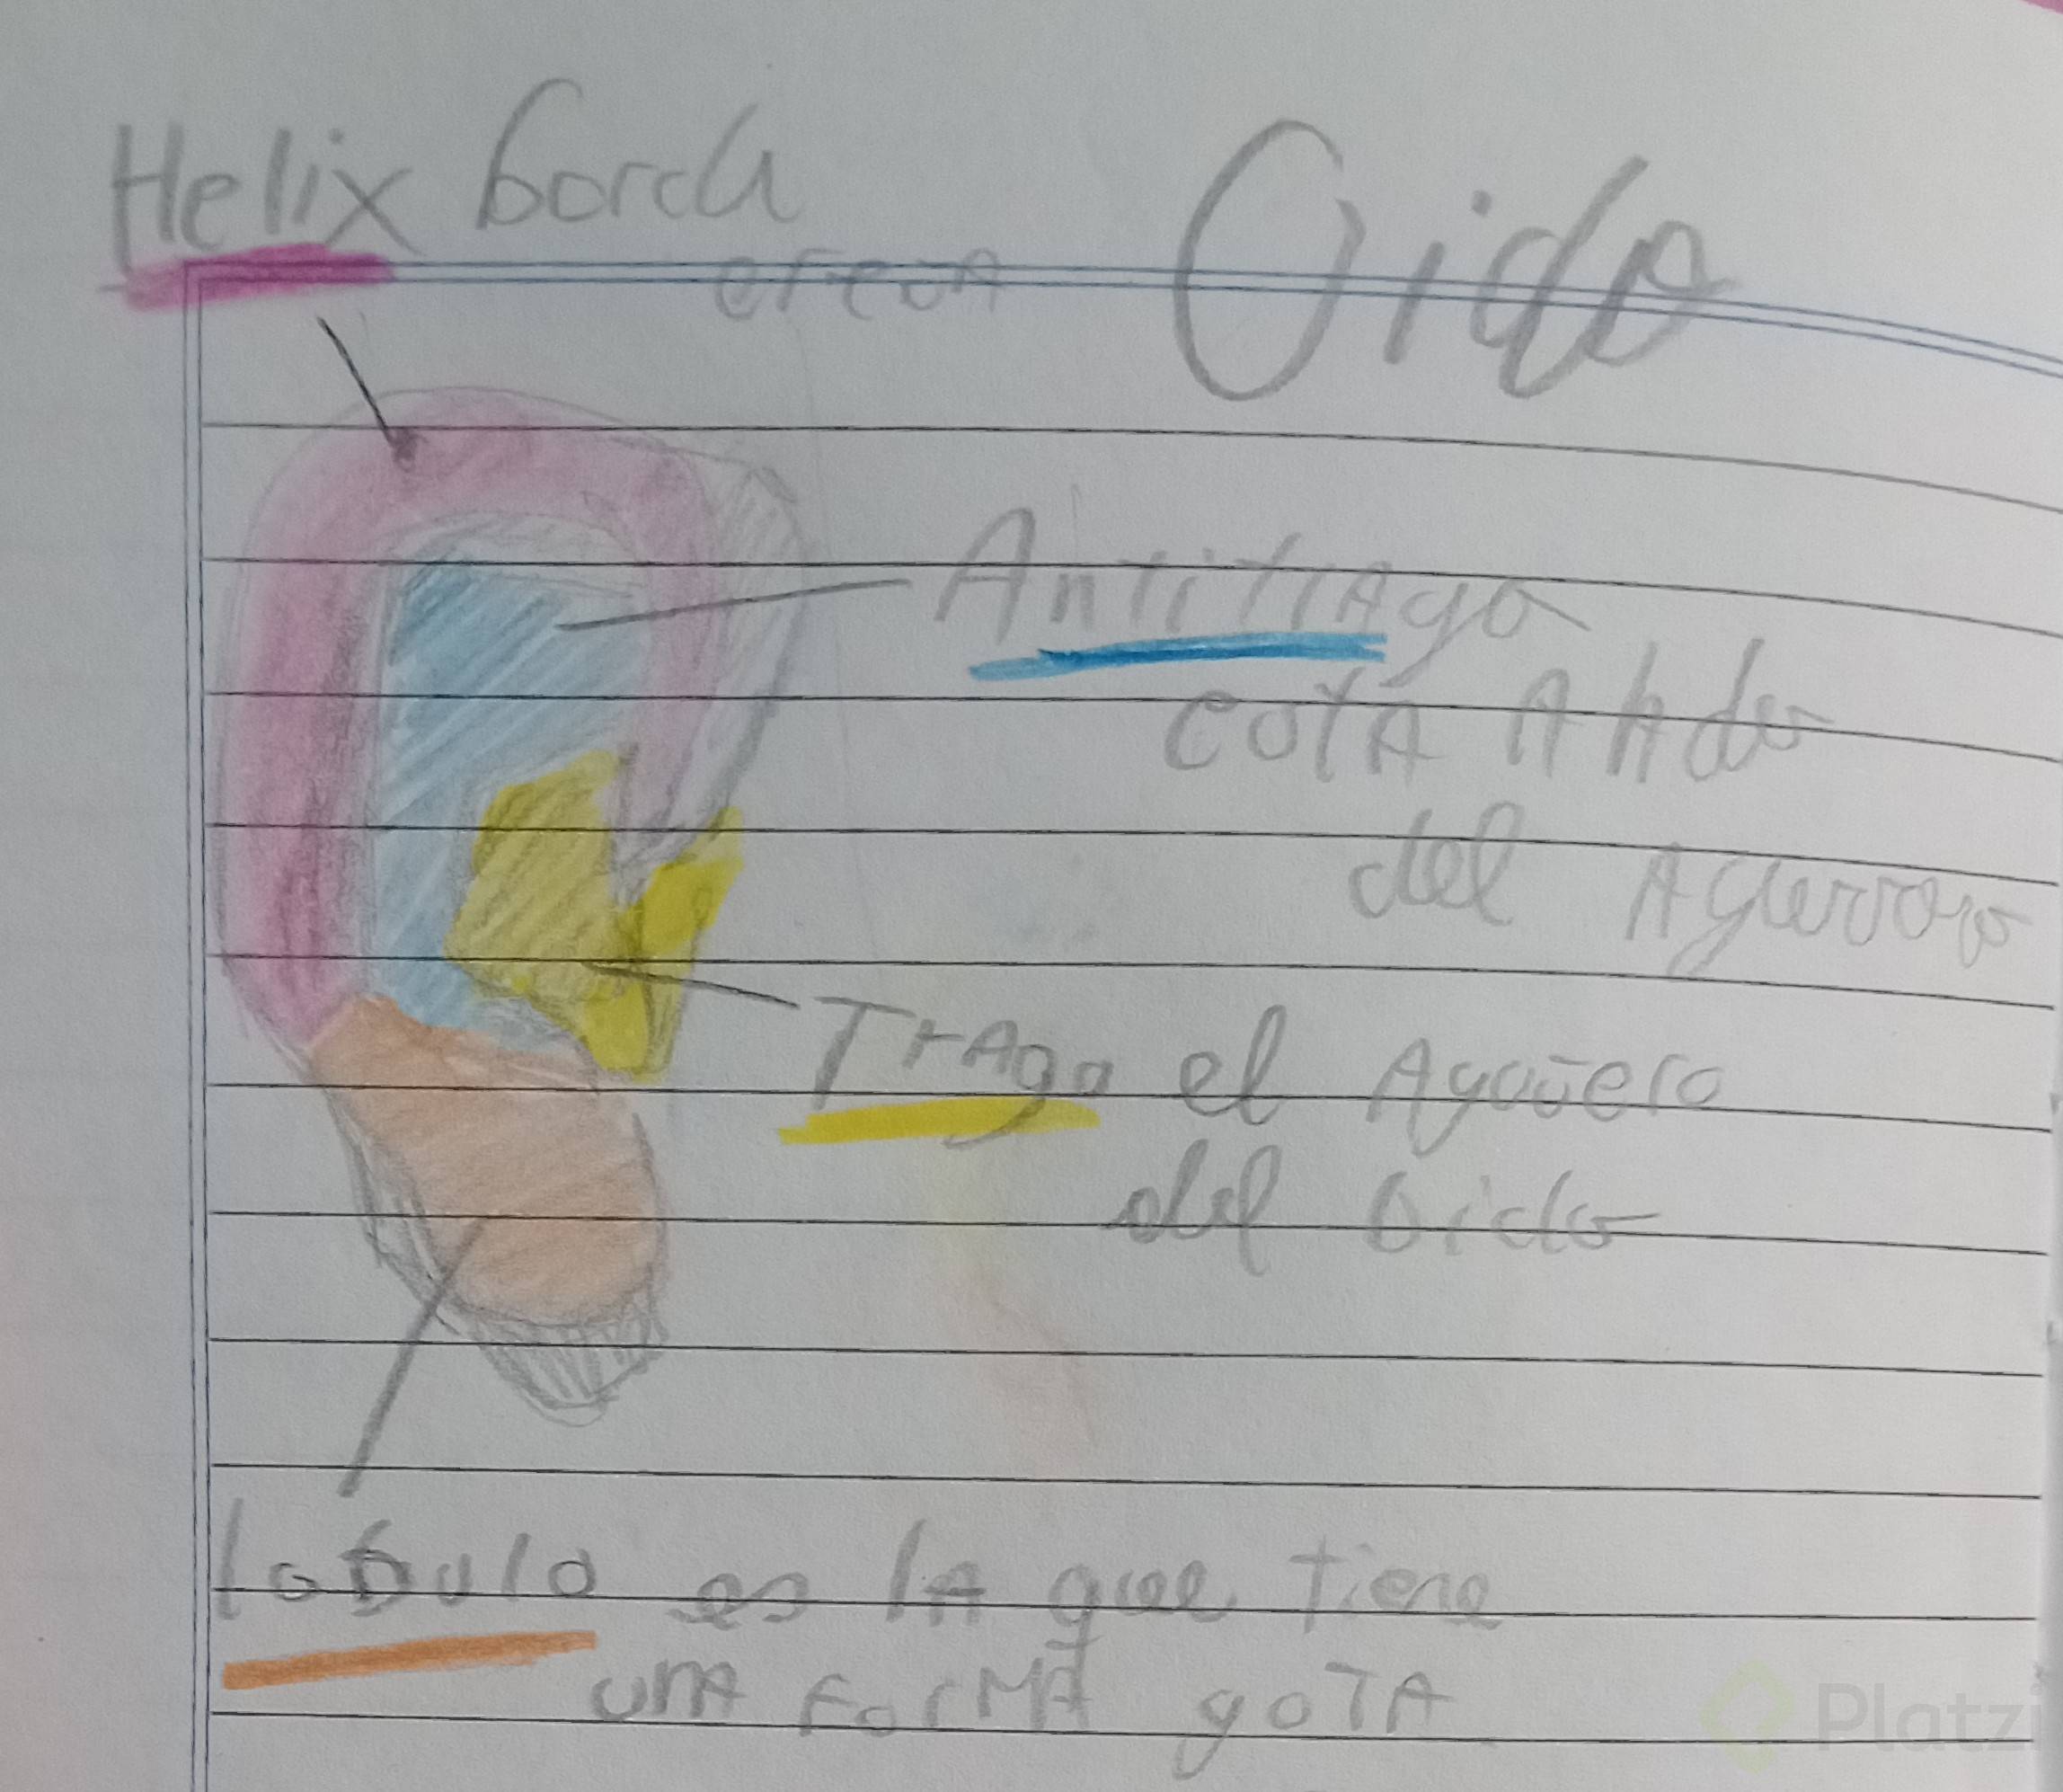 Helix borde
oreja
Oido
Antitrago
esta Al lado
del Agurro
Trago el Agouero
del Oido
lobulo es lA que tiene
unA ForMA goTA
Platzi